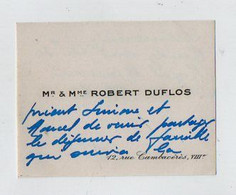 Mr & Mme ROBERT DUFLOS
prient Simone et
Marcel de venir partager
le déjeuner de famille
qui suivra la
12, rue Cambacérès, VIIIe